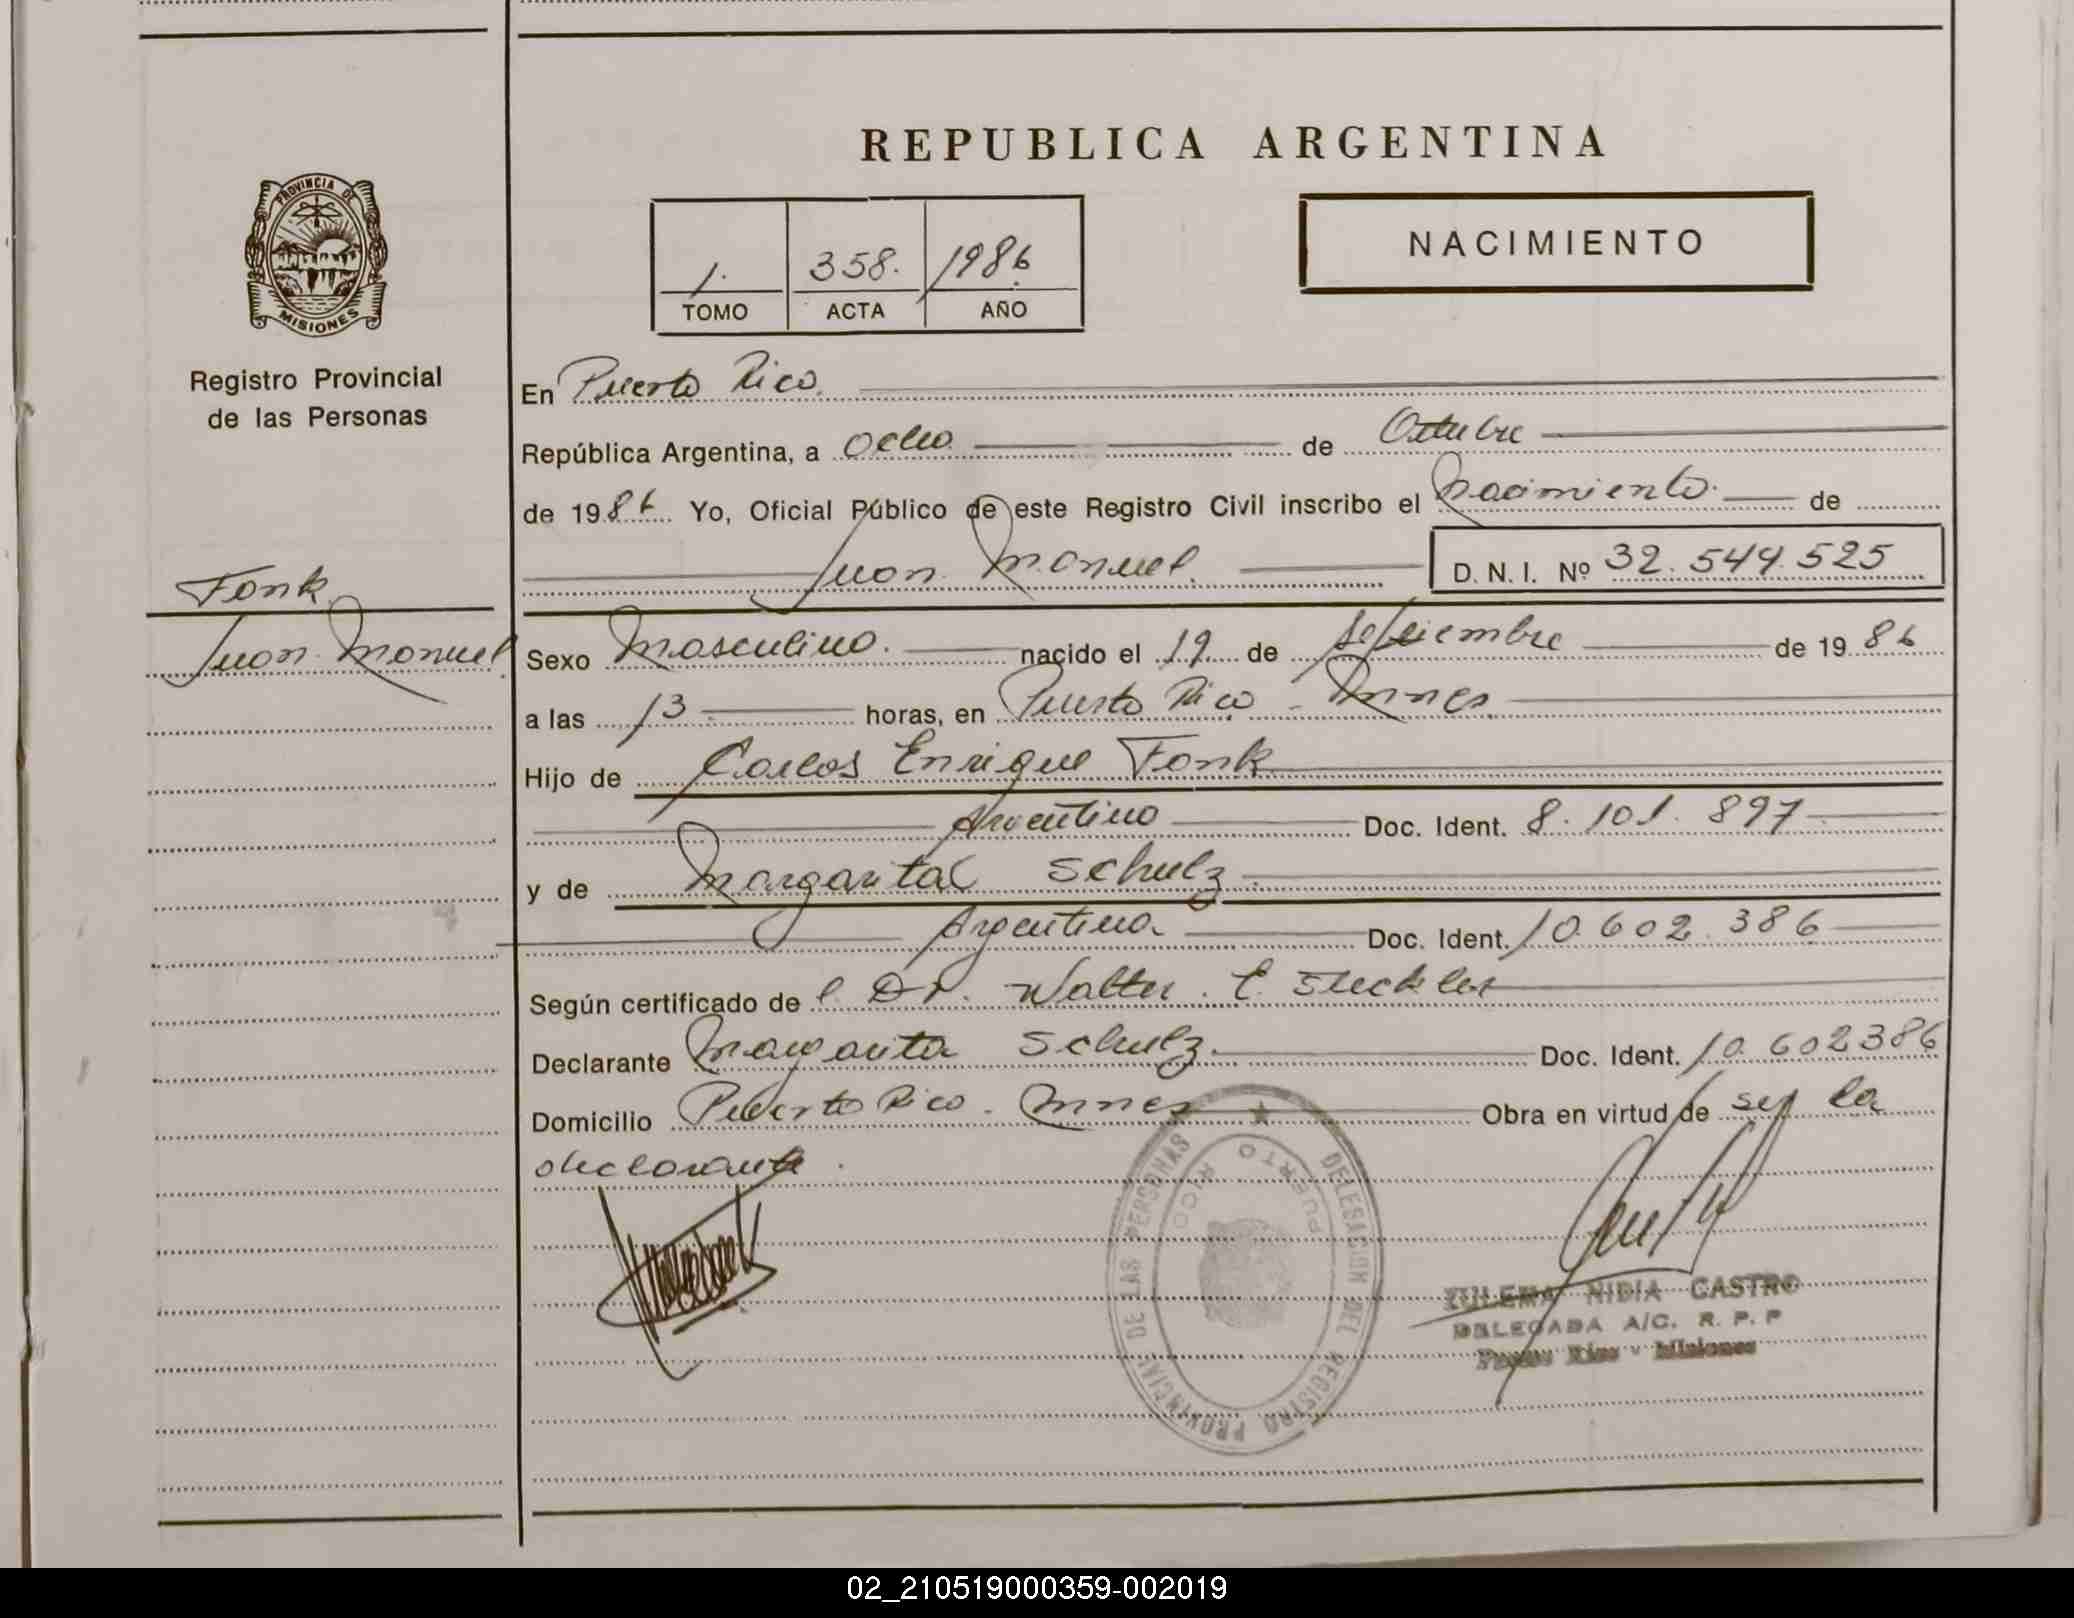 REPUBLICA ARGENTINA
PROVINCIA DE
MISIONES
Registro Provincial
de las Personas
1. 358. 1986
TOMO ACTA AÑO
NACIMIENTO
En Puerto Rico.
República Argentina, a Ocho de Octubre
de 1986 Yo, Oficial Público de este Registro Civil inscribo el Nacimiento. de
Juan Manuel. D. N. I. Nº 32.544.525
Fonk
Juan Manuel.
Sexo Masculino. nacido el 19 de septiembre de 1986
a las 13 horas, en Puerto Rico - Mnes.
Hijo de Carlos Enrique Fonk
Argentino Doc. Ident. 8.101.897
y de Margarita Schulz.
Argentina. Doc. Ident. 10.602.386
Según certificado de l Dr. Walter. E.
Declarante Margarita Schulz. Doc. Ident. 10.602386
Domicilio Puerto Rico. Mnes Obra en virtud de ser la
declarante.
DELEGACION DEL REGISTRO PROVINCIAL DE LAS PERSONAS
PUERTO RICO
ZULEMA NIDIA CASTRO
DELEGADA A/C. R. P. P
Puerto Rico - Misiones
02_210519000359-002019